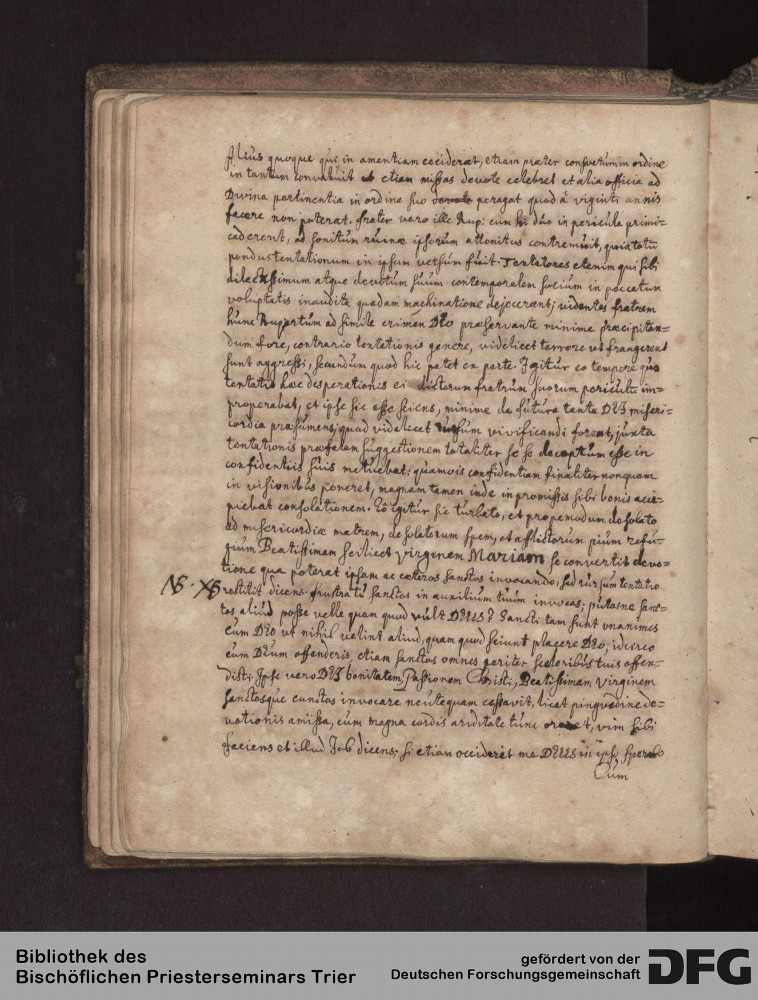 Alius quoque qui in amentiam ceciderat, etiam præter consuetum in ordine
in tantum convaluit ut etiam missas devote celebret et alia officia ad
Divina pertinentia in ordine suo devote peragat quod à viginti annis
facere non poterat. frater vero ille Rup: cum hi duo in pericula primi=
cederent, ad sonitum ruinæ ipsorum attonitus contremuit, quia totū
pondus tentationum in ipsum versum fuit. Tentatores etenim qui sibi
dilectissimum atque devotum suum contemporalem socium in peccatum
voluptatis inaudita quadam machinatione dejecerant; videntes fratrem
hunc Rupertum ad simile crimen DEo præservante minime præcipitan=
dum fore, contrario tentationis genere, videlicet terrore ut frangerent
sunt aggressi, secundum quod hic patet ex parte. Igitur eo tempore quo
tentatio hæc desperationis ei dictorum fratrum suorum periculū im=
properabat, et ipse sic esse sciens, minime de futura tanta DEI miseri=
cordia præsumens, quod videlicet sursum vivificandi forent, juxta
tentationis præfatam suggestionem totaliter se se deceptum esse in
confidentiis suis metuebat; quamvis confidentiam finaliter nonquam
in visionibus poneret, magnam tamen inde in promissis sibi bonis acci=
piebat consolationem. Eo igitur sic turbato, et propemodum desolato
ad misericordiæ matrem, desolatorum spem, et afflictorum pium refu=
gium Beatissimam scilicet virginem Mariam se convertit devo=
tione qua poterat ipsam ac cæteros sanctos invocando, sed rursum tentatio
NB. XB restitit dicens. frustra tu sanctos in auxilium tuum invocas; putasne sanc=
tos aliud posse velle quam quod vult DEUS? Sancti tam sunt unanimes
cum DEo ut nihil velint aliud, quam quod sciunt placere DEo; idcirco
cum DEum offenderis, etiam sanctos omnes pariter sceleribus tuis offen=
disti. Ipse vero DEI bonitatem, Passionem Christi, Beatissimam virginem
sanctosque cunctos invocare neutequam cessavit, licet pinguedine de=
votionis amissa, cum magna cordis ariditate tunc oraret, vim sibi
faciens et illud Job dicens; si etiam occiderit me DEUS in ipso sperabo
Cum
Bibliothek des
Bischöflichen Priesterseminars Trier
gefördert von der
Deutschen Forschungsgemeinschaft
DFG